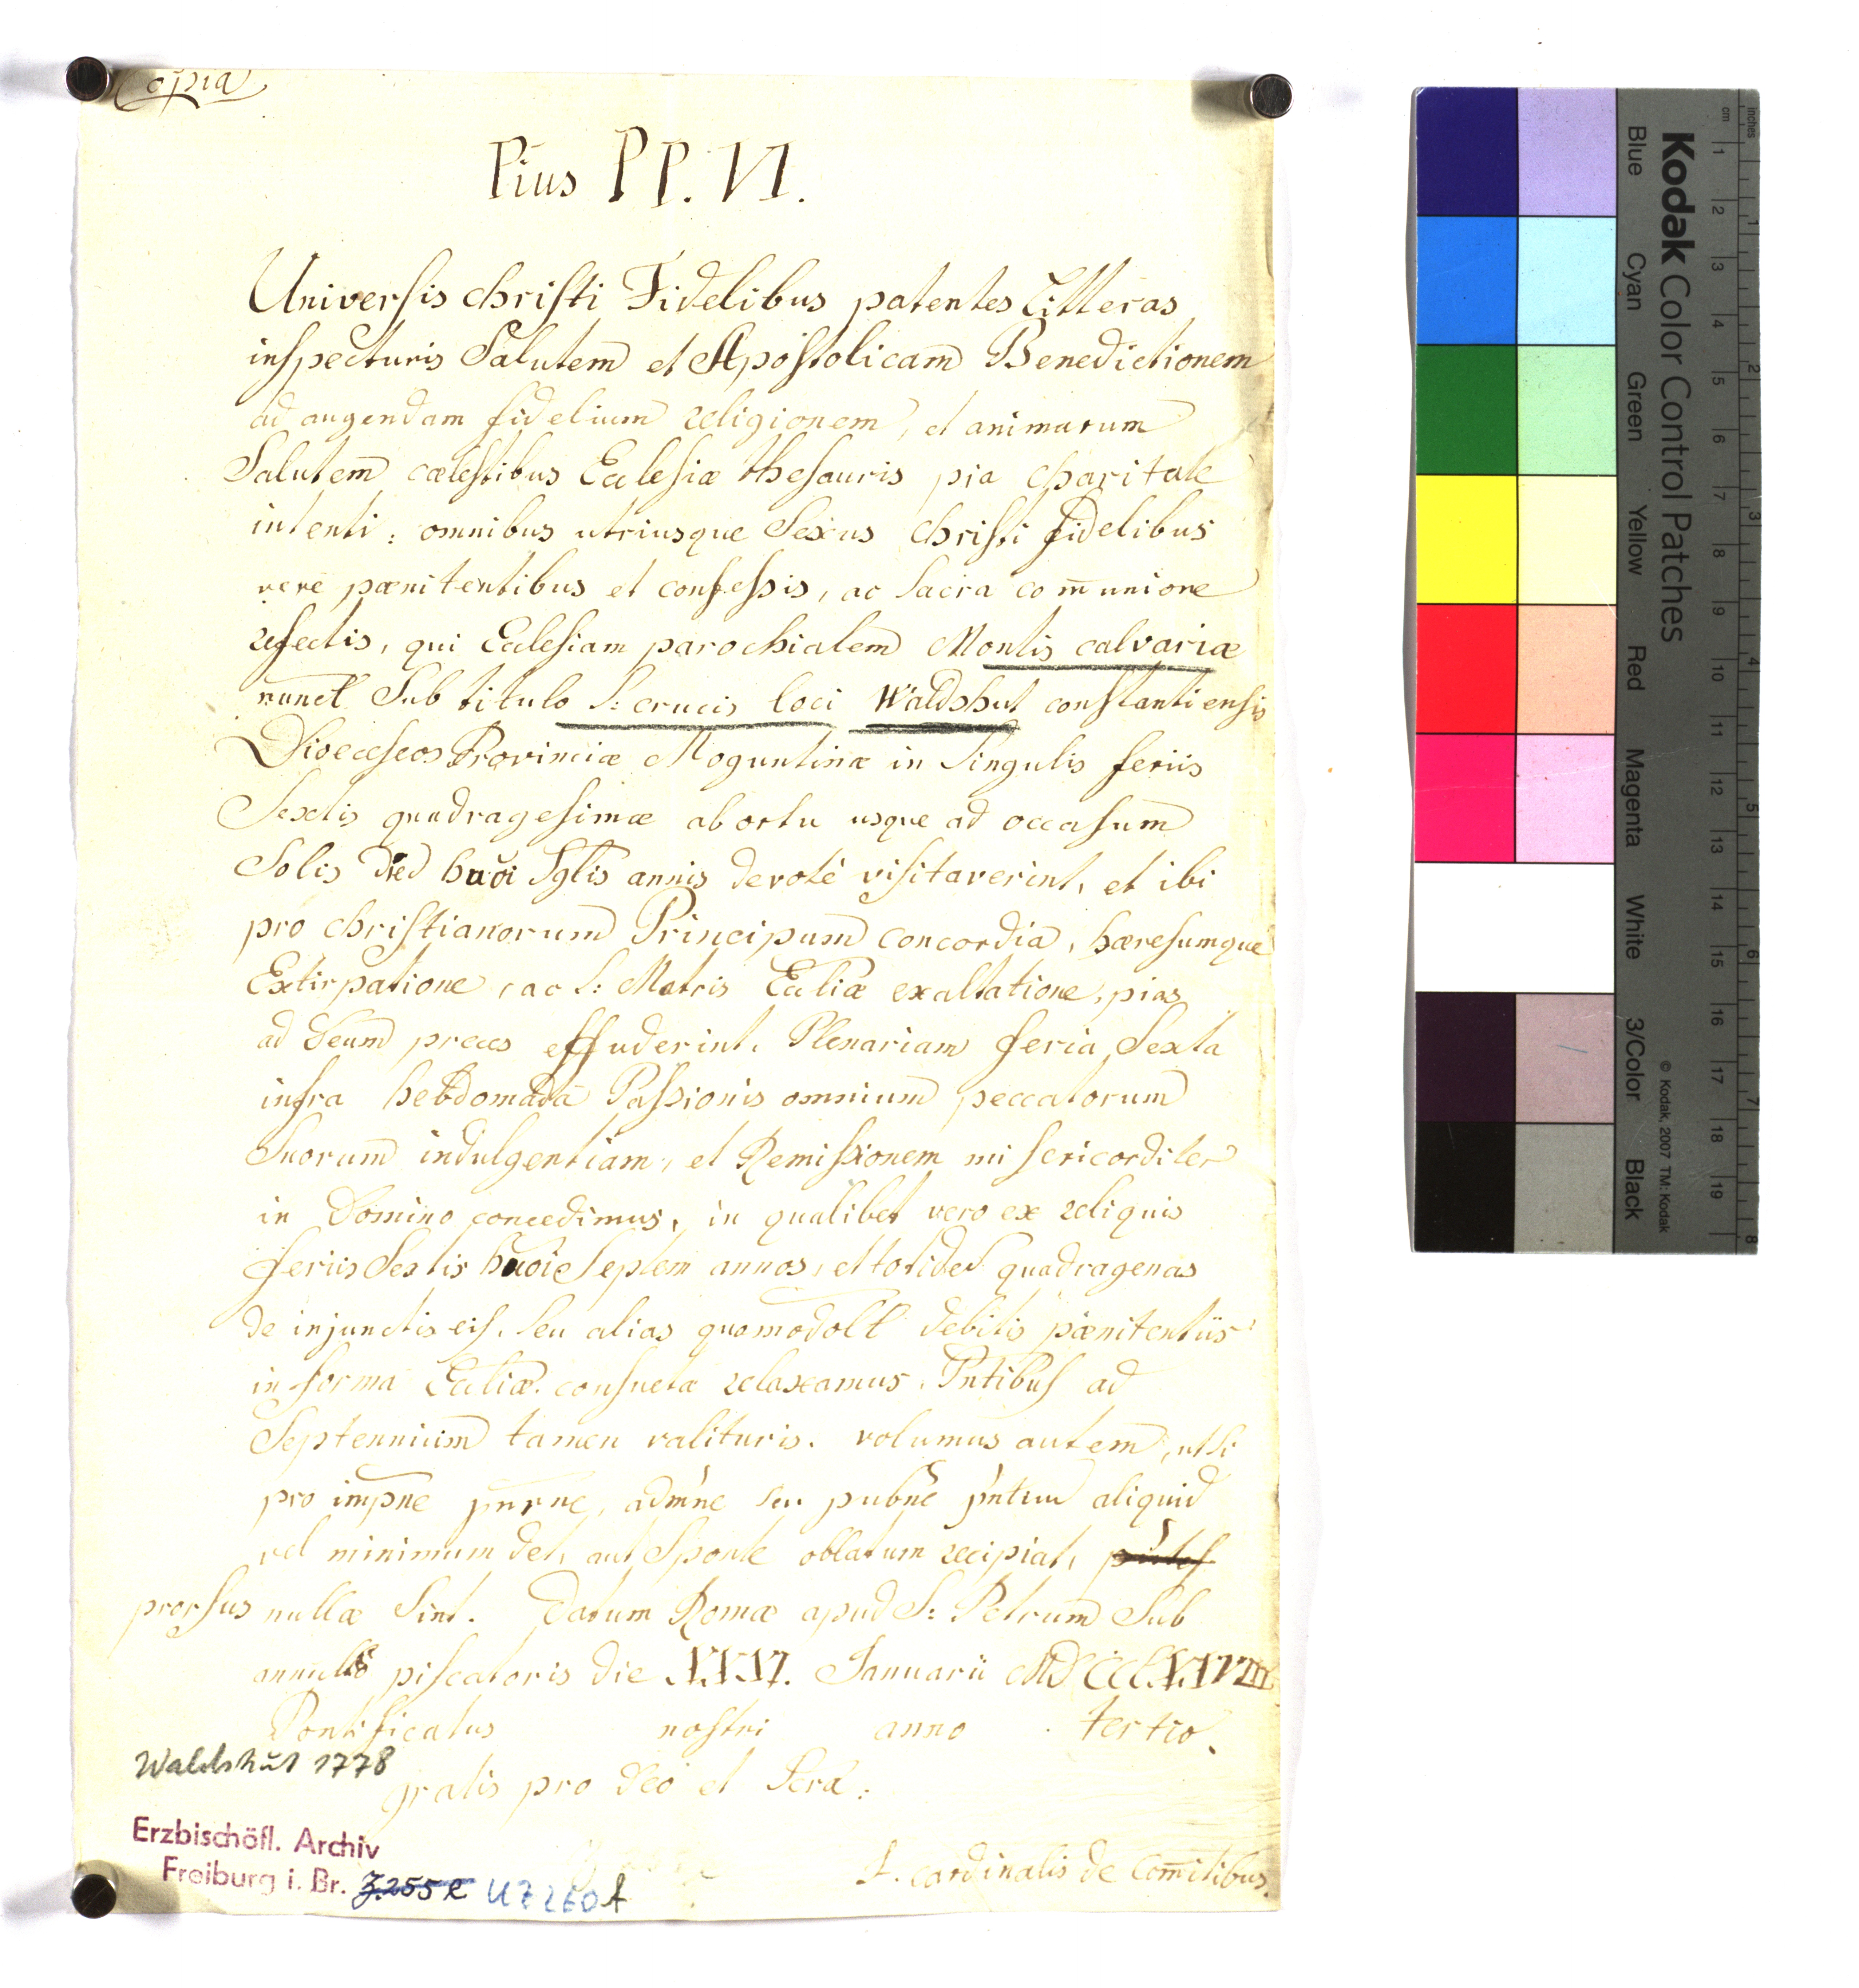 Copia
Pius PP. VI.
Universis christi Fidelibus patentes Litteras
inspecturis Salutem et Apostolicam Benedictionem
ad augendam fidelium religionem, et animarum
Salutem cælestibus Ecclesiæ thesauris pia charitate
intenti: omnibus utriusque Sexus christi fidelibus
vere pænitentibus et confessis, ac Sacra com̄unione
refectis, qui Ecclesiam parochialem Montis calvariæ
nunct Sub titulo S: crucis loci Waldshut constantiensis
Dioeceseos Provinciæ Moguntinæ in Singulis feriis
Sextis quadragesimæ ab ortu usque ad occasum
Solis annis devotè visitaverint, et ibi
pro christianorum Principum concordia, hæresumque
Extirpatione, ac S: Matris Eccliæ exaltatione, pias
ad Deum preces effuderint, Plenariam feria Sexta
infra hebdomadā Passionis omnium peccatorum
Suorum indulgentiam, et Remissionem misericorditer
in Domino concedimus, in qualibet vero ex reliquis
feriis Sextis Septem annos, et totided quadragenas
de injunctis eis, Seu alias quomodolt debitis pænitentiis
in forma Eccliæ consueta relaxamus. Pntibus ad
Septennium tamen valituris. volumus autem, ut Si
pro impne pnrne, admne seu pubne pntum aliquid
vel minimum det, aut Sponte oblatum recipiat,
prorsus nullæ Sint. Datum Romæ apud S: Petrum Sub
annullo piscatoris die XXXI. Januarii MDCCLXXVIII
Pontificatus nostri anno tertio.
gratis pro Deo et Scra:
Waldshut 1778
Erzbischöfl. Archiv
Freiburg i. Br. Z.255 e UZ 260f
I. Cardinalis de Comitibus.
Kodak Color Control Patches
Blue Cyan Green Yellow Red Magenta White 3/Color Black
© Kodak, 2007 TM: Kodak
inches 1 2 3 4 5 6 7 8
cm 1 2 3 4 5 6 7 8 9 10 11 12 13 14 15 16 17 18 19